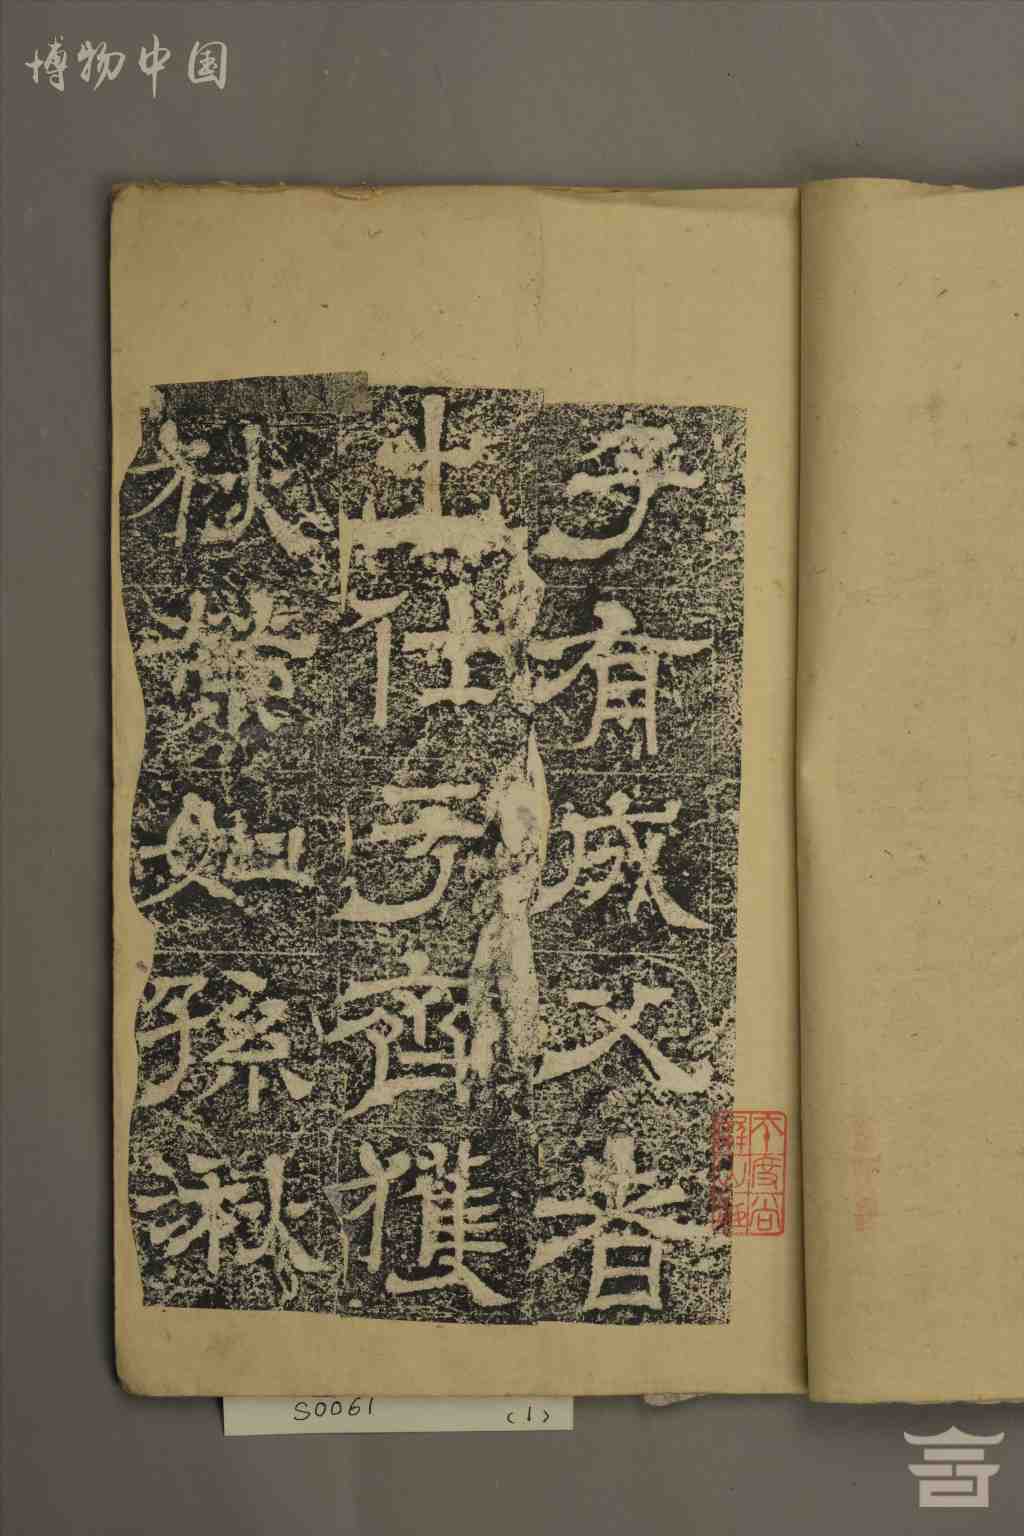 博物中国
子有成父者
出仕于齊獲
狄榮如孫湫
S0061 (1)